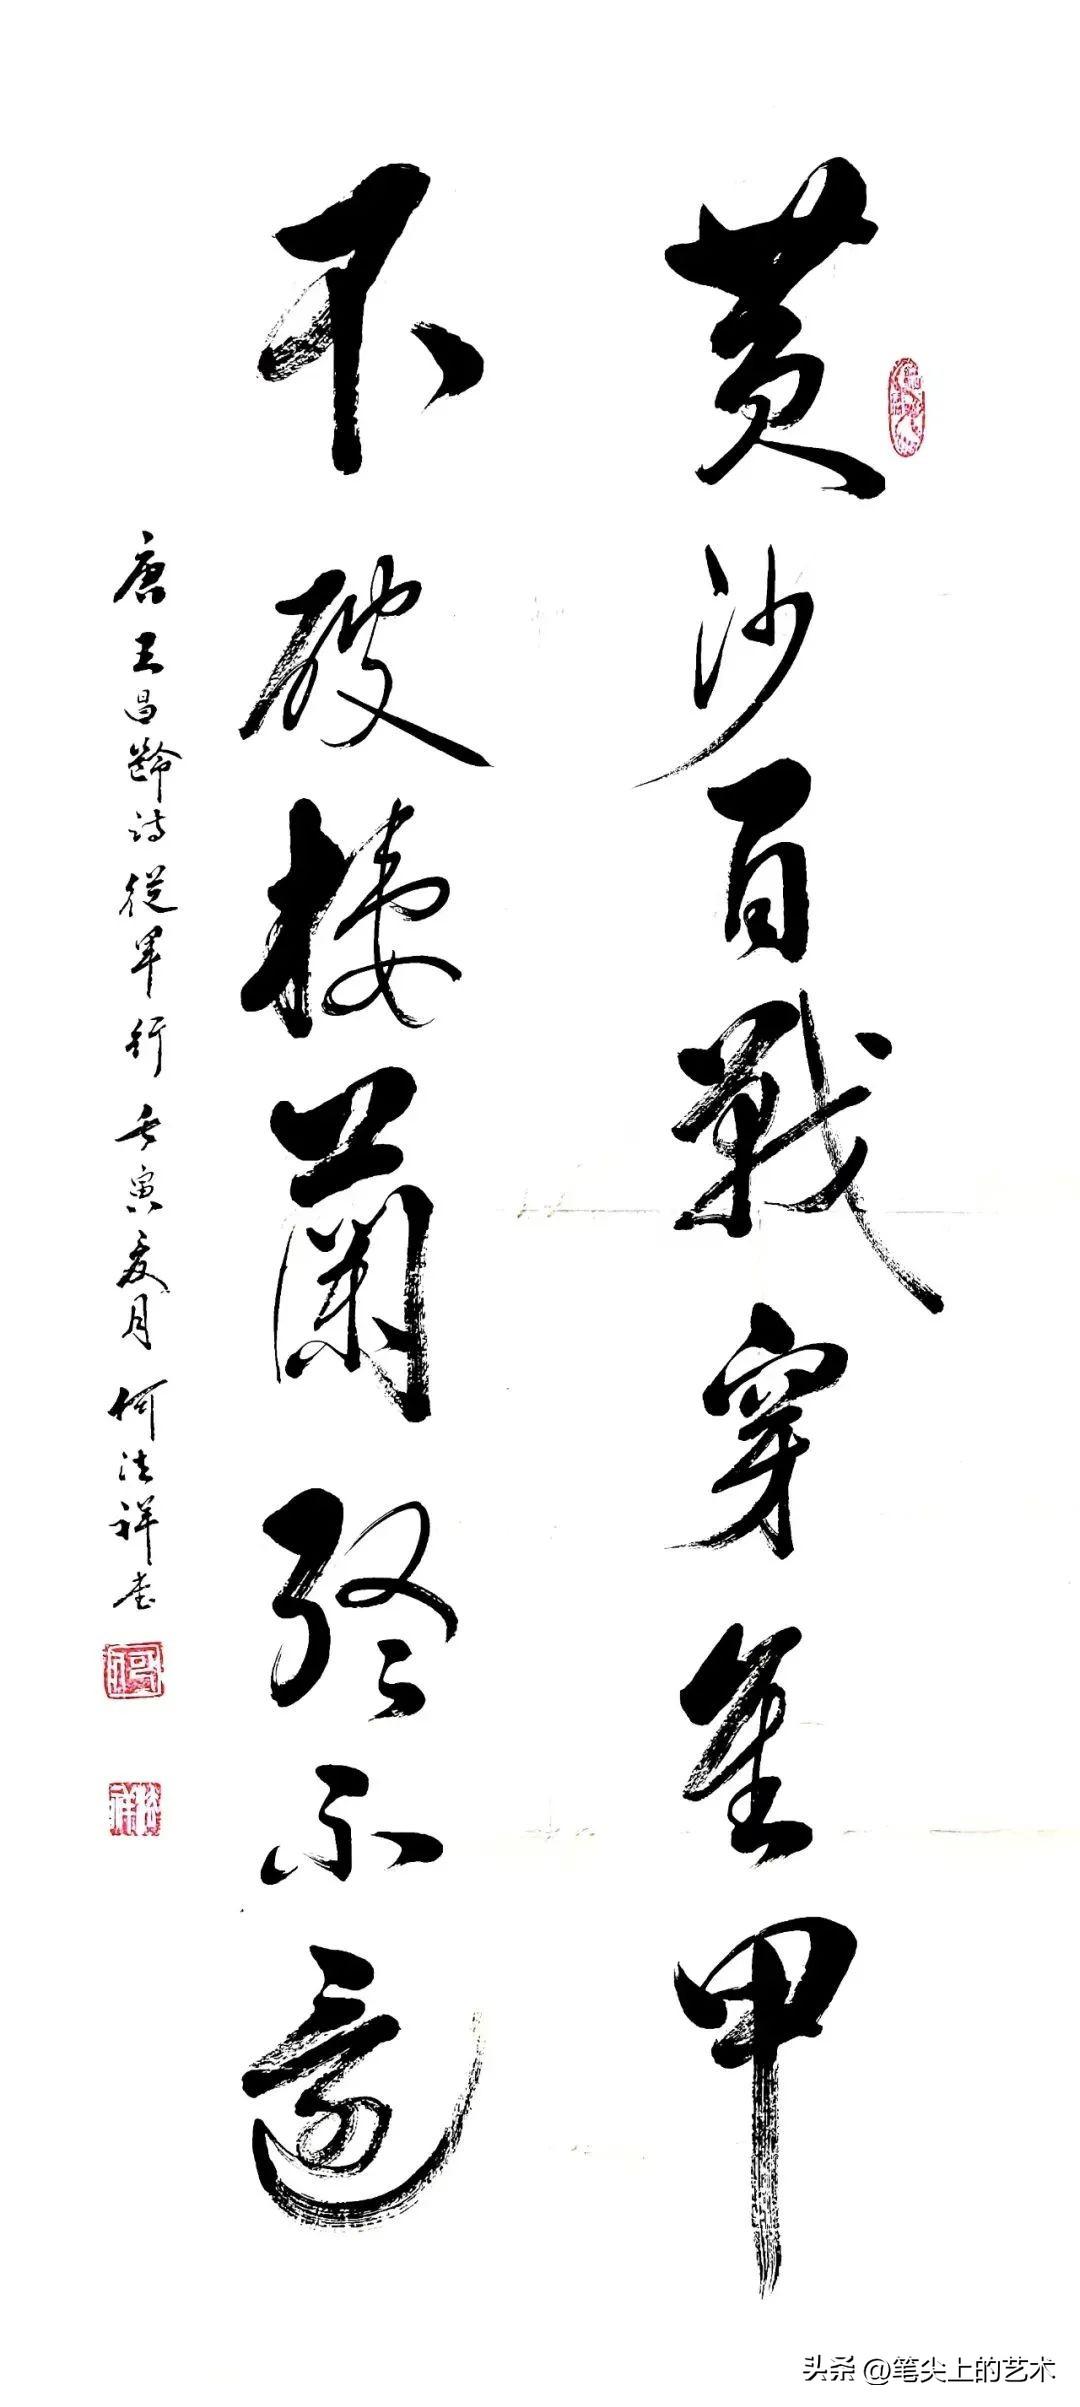 黄沙百戰穿金甲
不破樓蘭終不還
唐王昌齡詩從軍行 壬寅夏月 何法祥書
法祥
头条 @笔尖上的艺术